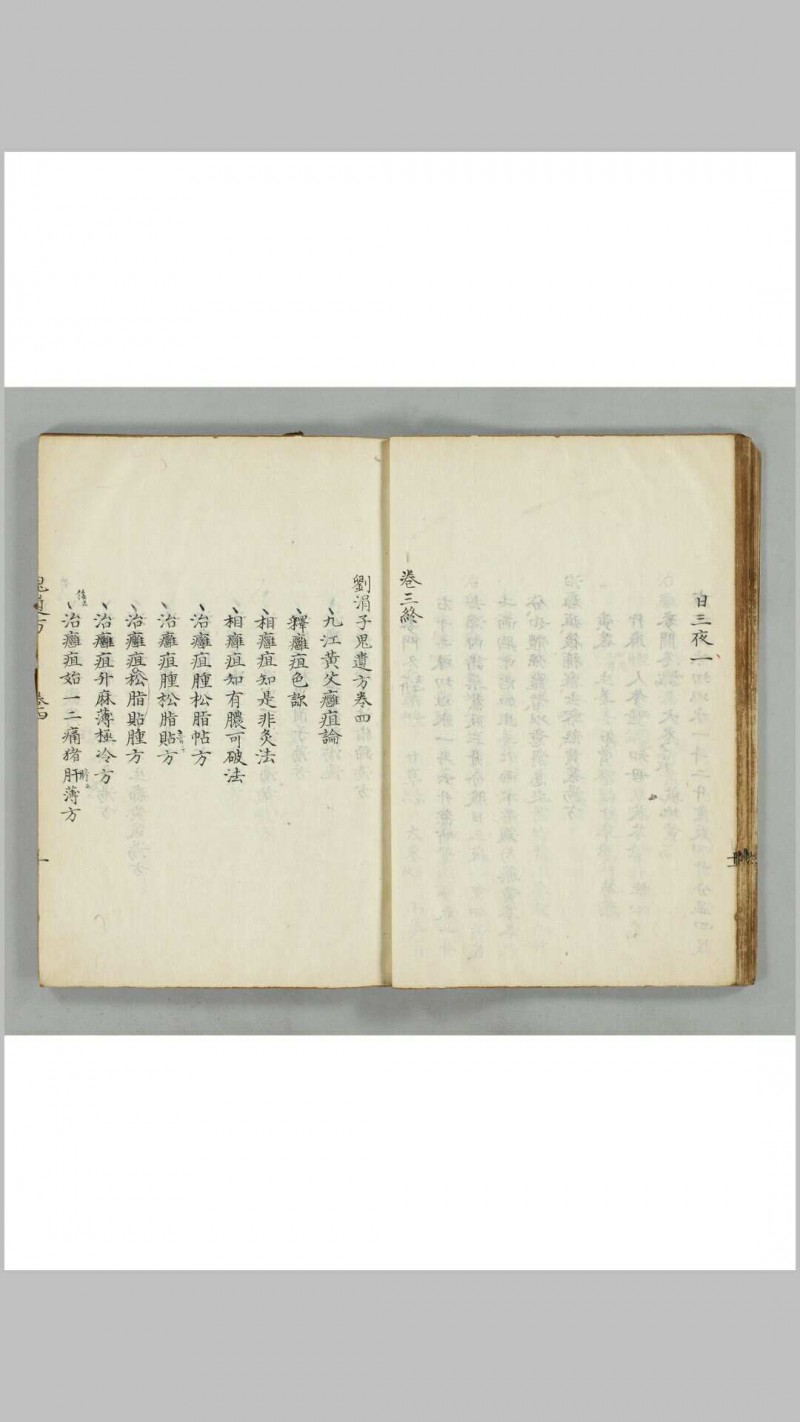 日三夜一
卷三終
劉涓子鬼遺方卷四
九江黃父癰疽論
釋癰疽色診
相癰疽知是非灸法
相癰疽知有膿可破法
治癰疽腫松脂帖方
治癰疽腫松脂貼方
治癰疽松脂貼腫方
治癰疽升麻薄極冷方
治癰疽始一二痛猪肝薄方
鬼遺方 卷四